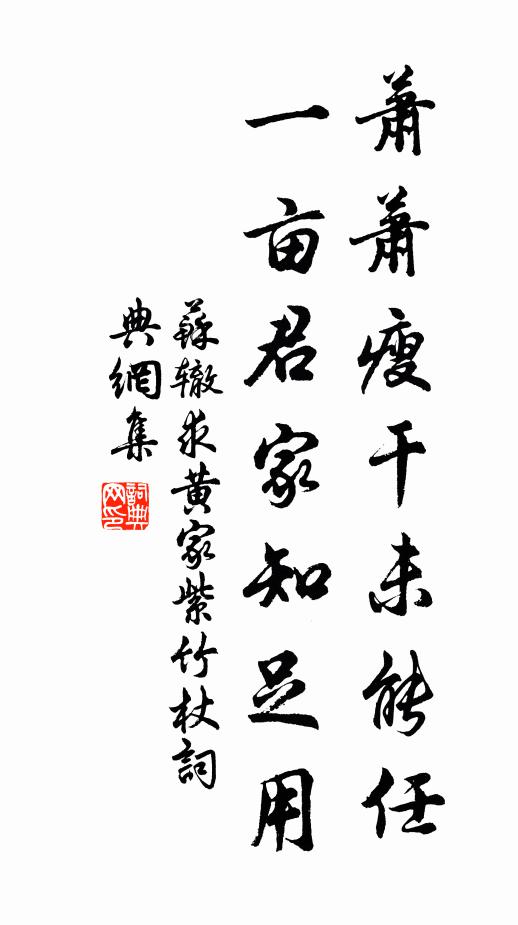 蕭蕭瘦干未能任
一亩君家知足用
蘇辙求黃家紫竹杖詞
典網集
詞典
网印